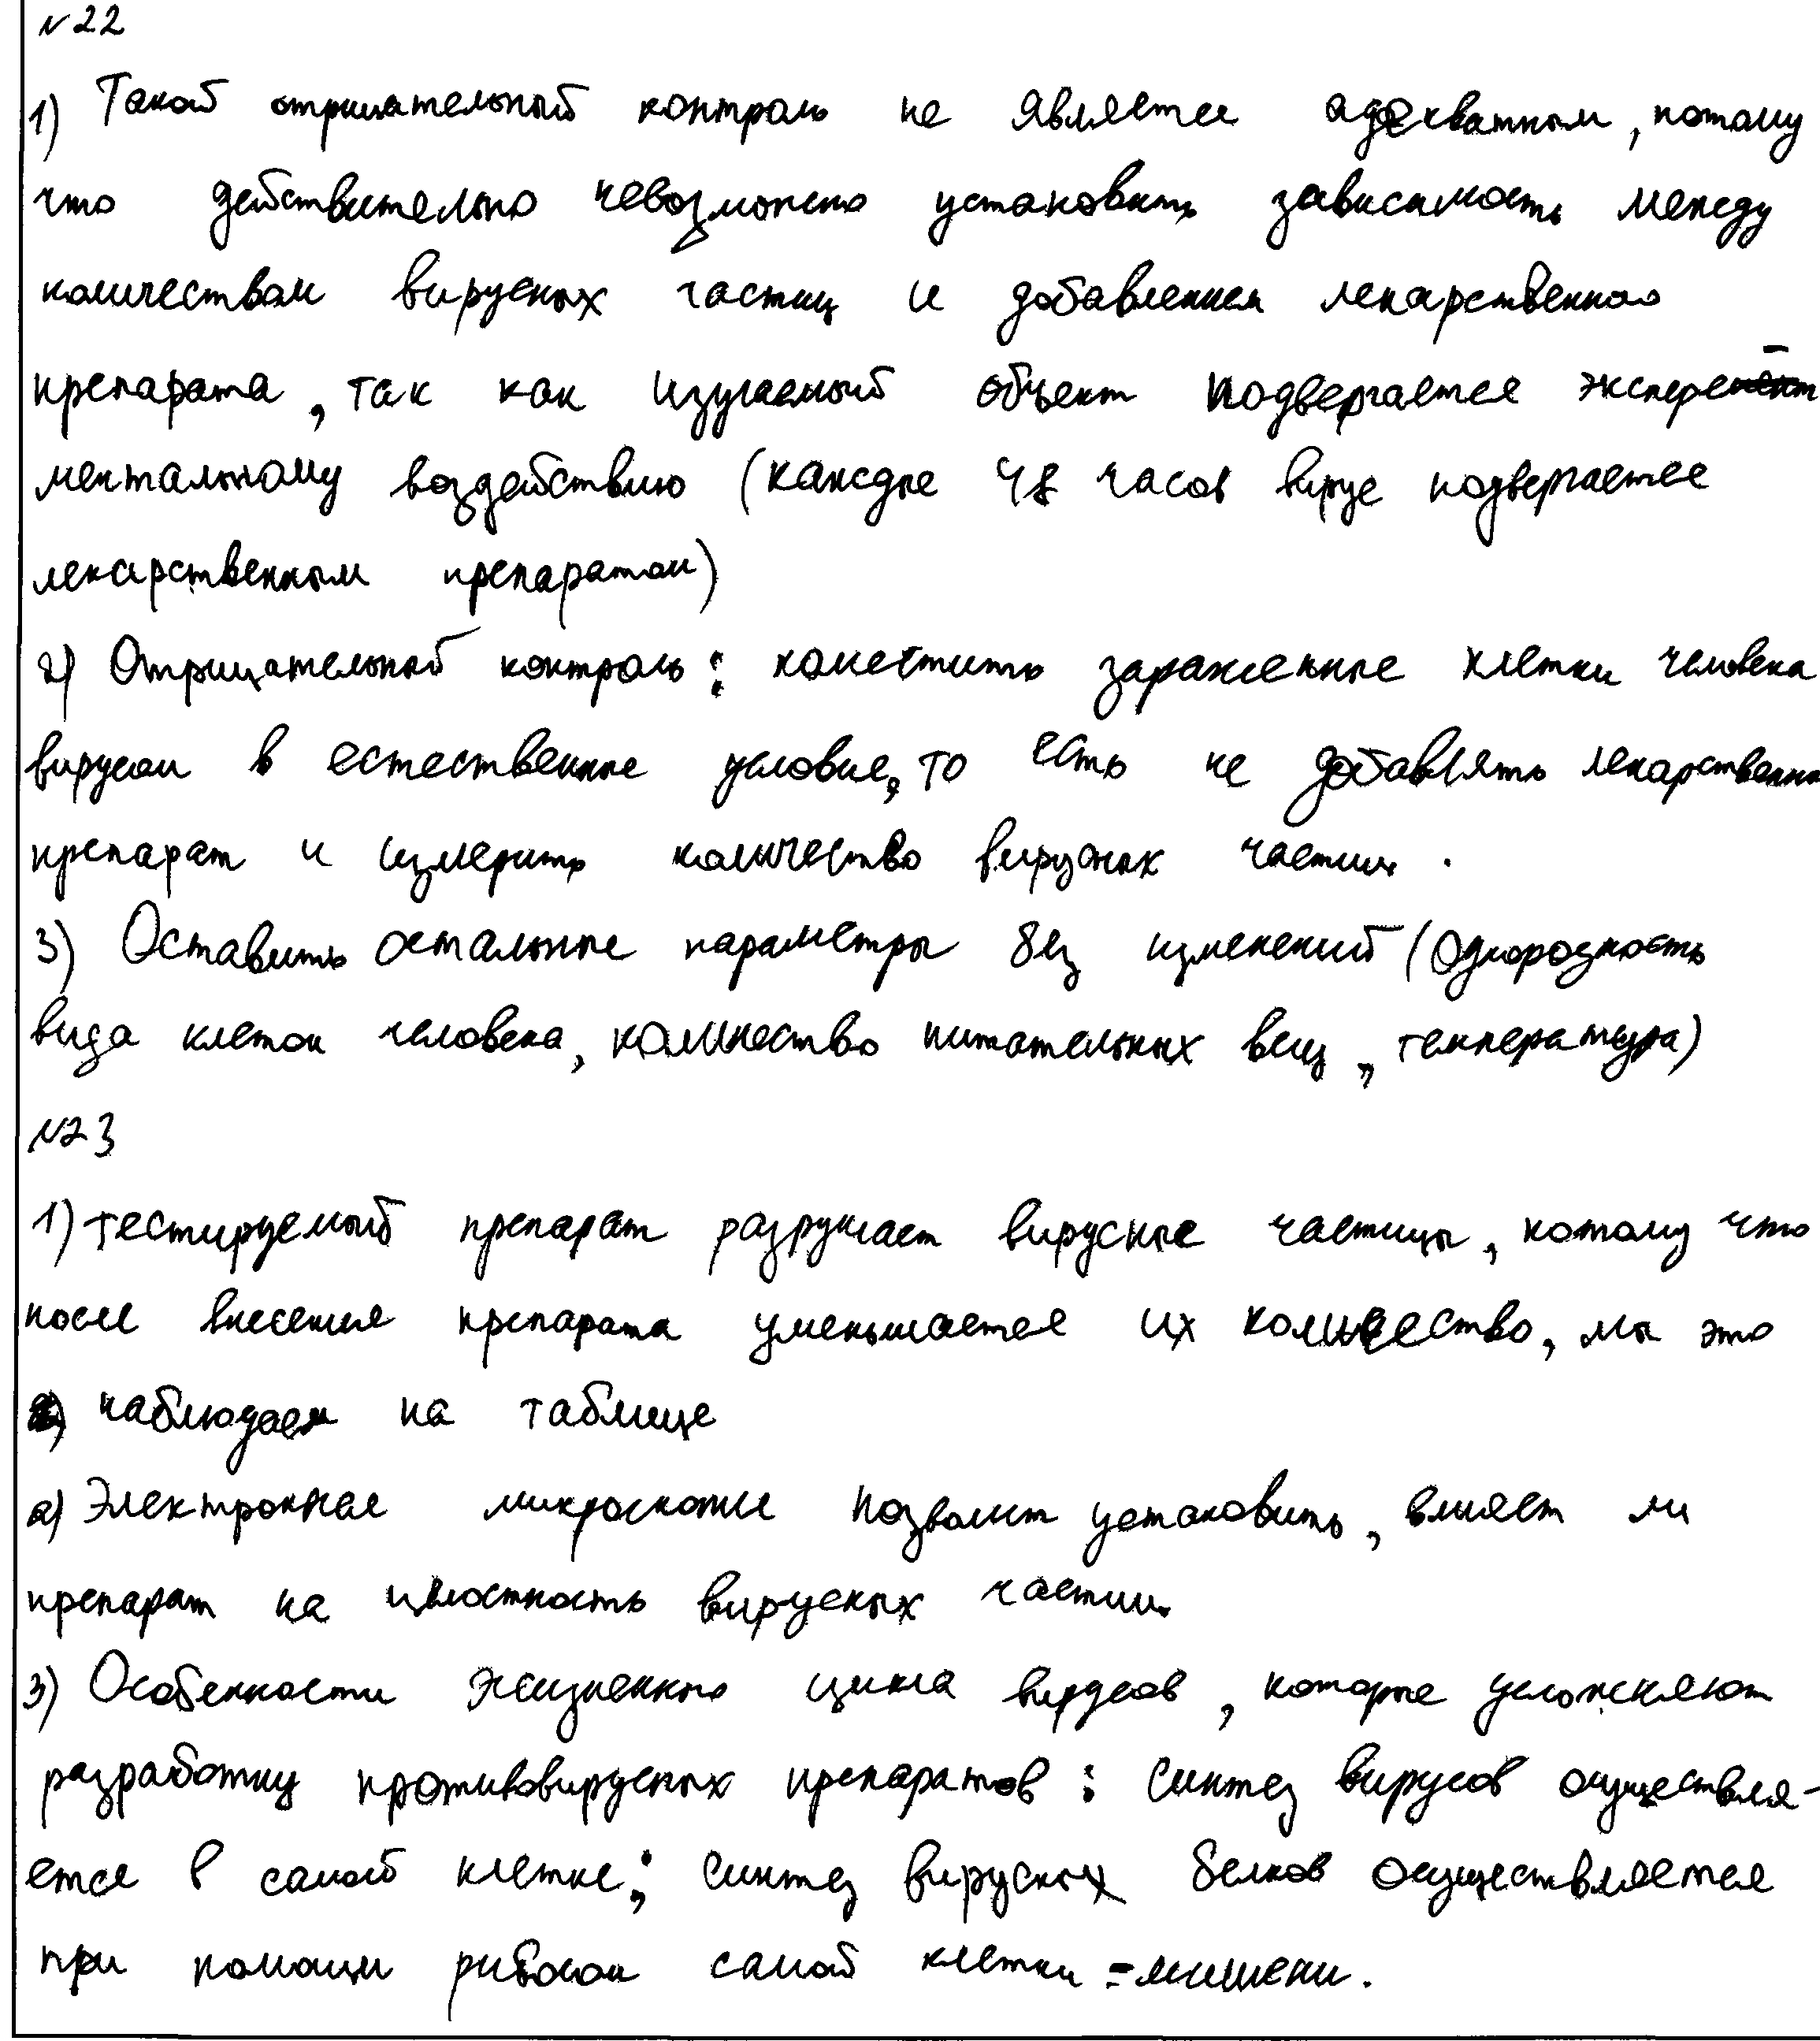 №22
1) Такой отрицательный контроль не является адекватным, потому
что действительно невозможно установить зависимость между
количеством вирусных частиц и добавлением лекарственного
препарата, так как изучаемый объект подвергается экспере-
ментальному воздействию (каждые 48 часов вирус подвергается
лекарственным препаратом)
2) Отрицательный контроль: поместить зараженные клетки человека
вирусом в естественные условие, то есть не добавлять лекарственный
препарат и измерить количество вирусных частиц.
3) Оставить остальные параметры без изменений (однородность
вида клеток человека, количество питательных вещ, температура)
№23
1) тестируемый препарат разрушает вирусные частицы, потому что
после внесения препарата уменьшается их количество, мы это
наблюдаем на таблице
2) Электронная микроскопия позволит установить, влияет ли
препарат на целостность вирусных частиц
3) Особенности жизненного цикла вирусов, которые усложняют
разработку противовирусных препаратов: синтез вирусов осуществля-
ется в самой клетке; синтез вирусных белков осуществляется
при помощи рибосом самой клетки-мишени.